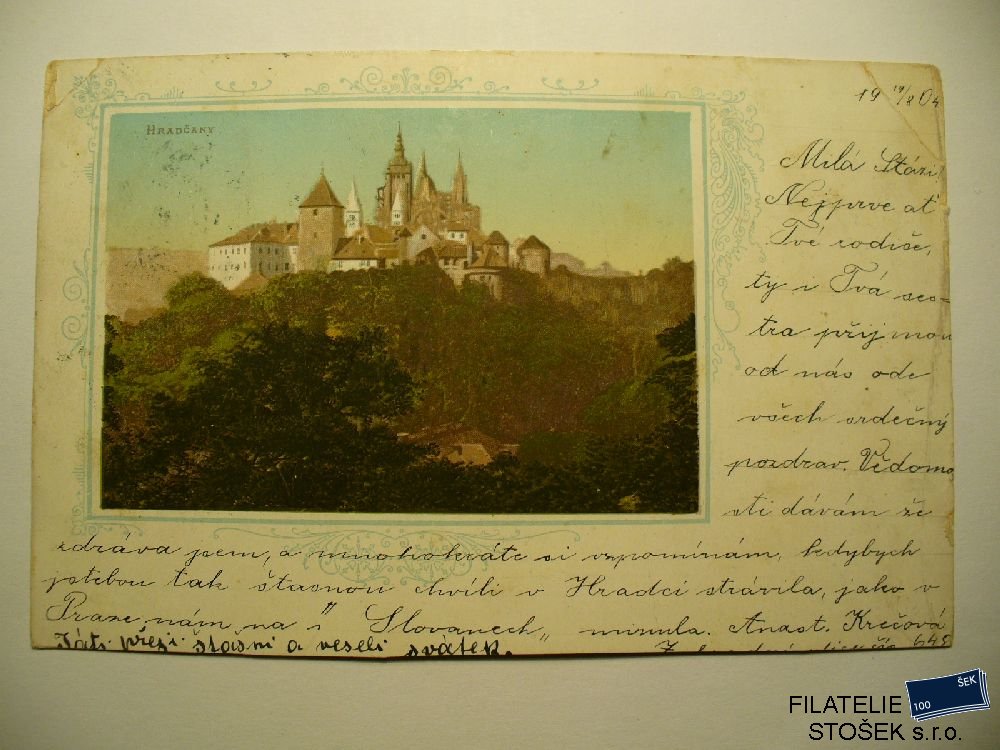 HRADČANY
19 19/2 04
Milá Stázi!
Nejprve ať
Tvé rodiče,
ty i Tvá ses-
tra přijmou
od nás ode
všech srdečný
pozdrav. Vědomo
sti dávám že
zdráva jsem, a mnohokráte si vzpomínám, kdybych
jstebou tak šťasnou chvíli v Hradci strávila, jako v
Praze nám na "Slovanech" minula. Anast. Krčová
přeji šťasní a veselí svátek.
645
FILATELIE
STOŠEK s.r.o.
100
ŠEK